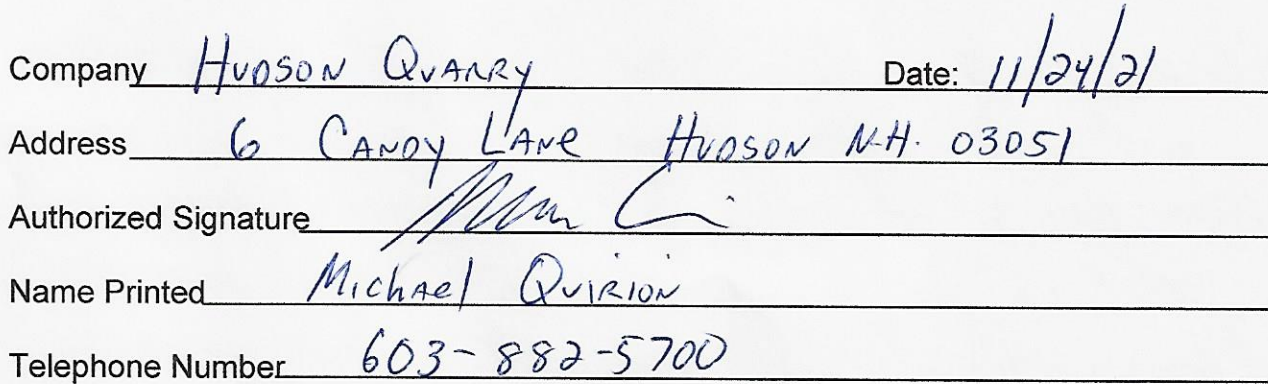 Company Hudson Quarry Date: 11/24/21
Address 6 Candy Lane Hudson N.H. 03051
Authorized Signature
Name Printed Michael Quirion
Telephone Number 603-882-5700